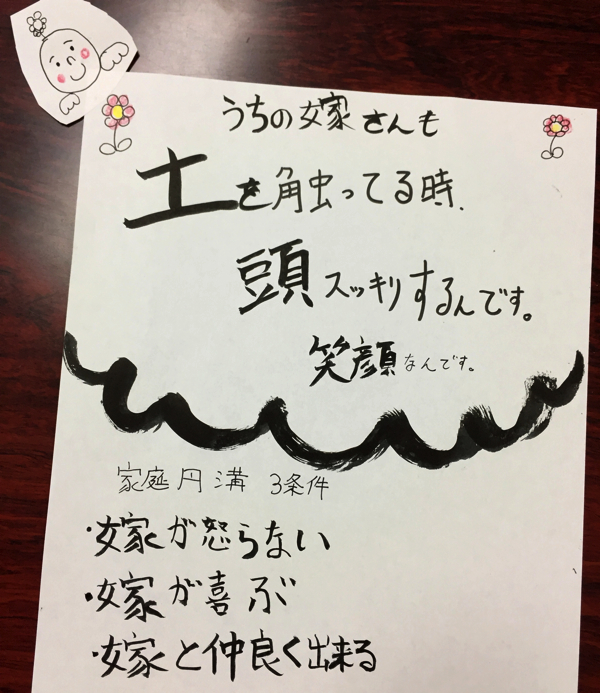 うちの嫁さんも
土を触ってる時、
頭スッキリするんです。
笑顔なんです。
家庭円満 3条件
・嫁が怒らない
・嫁が喜ぶ
・嫁と仲良く出来る